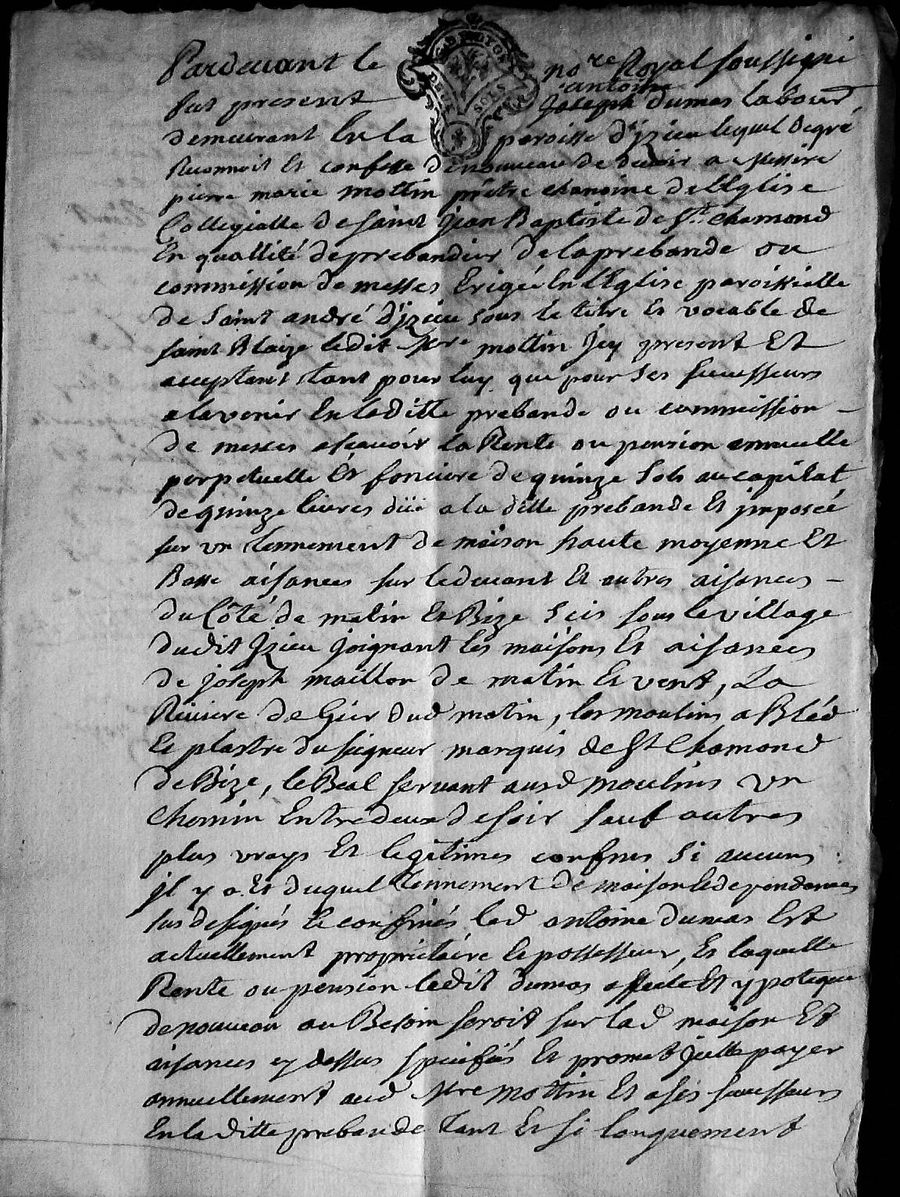 Pardevant le nore Royal soussigné
fut present antoine Joseph dumas labourr
demeurant En la paroisse d'izieu lequel de gré
Reconnoit Et confesse de nouveau de devoir a messire
pierre marie mottin prêtre chanoine de l'Eglise
Collegialle de saint Jean Baptiste de St. chamond
En quallité de prebandier de la prebande ou
commission de messes Erigée En l'Eglise paroissielle
de Saint andré d'izieu sous le titre Et vocable de
saint Blaize ledit Mre mottin Icy present Et
acceptant tant pour luy que pour ses successeurs
a lavenir En la ditte prebande ou commission
de messes ascavoir la Rente ou pension annuelle
perpetuelle Et fonciere de quinze sols au capital
de quinze livres düe a la ditte prebande Et imposée
sur un tennement de maison haute moyenne Et
Basse aisances sur le devant Et autres aisances
du Côté de matin Et Bize scis sous le village
dudit Izieu joignant les maisons Et aisances
de joseph maillon de matin Et vent, La
Riviere de Giér dud matin, les moulins a Bled
Et plastre du seigneur marquis de St Chamond
de Bize, le Beal servant ausd moulins un
chemin Entredeux de soir sauf autres
plus vrays Et legitimes confins si aucuns
il y a Et duquel tennement de maison Et dependances
sus designés Et confinés led antoine dumas Est
actuellement propriétaire Et possesseur, Et laquelle
Rente ou pension ledit dumas affecte Et ypoteque
de nouveau au Besoin seroit sur lad maison Et
aisances cy dessus speifiés Et promet jcelle payer
annuellement aud Mre mottin Et a ses successeurs
En la ditte prebande tant Et si longuement